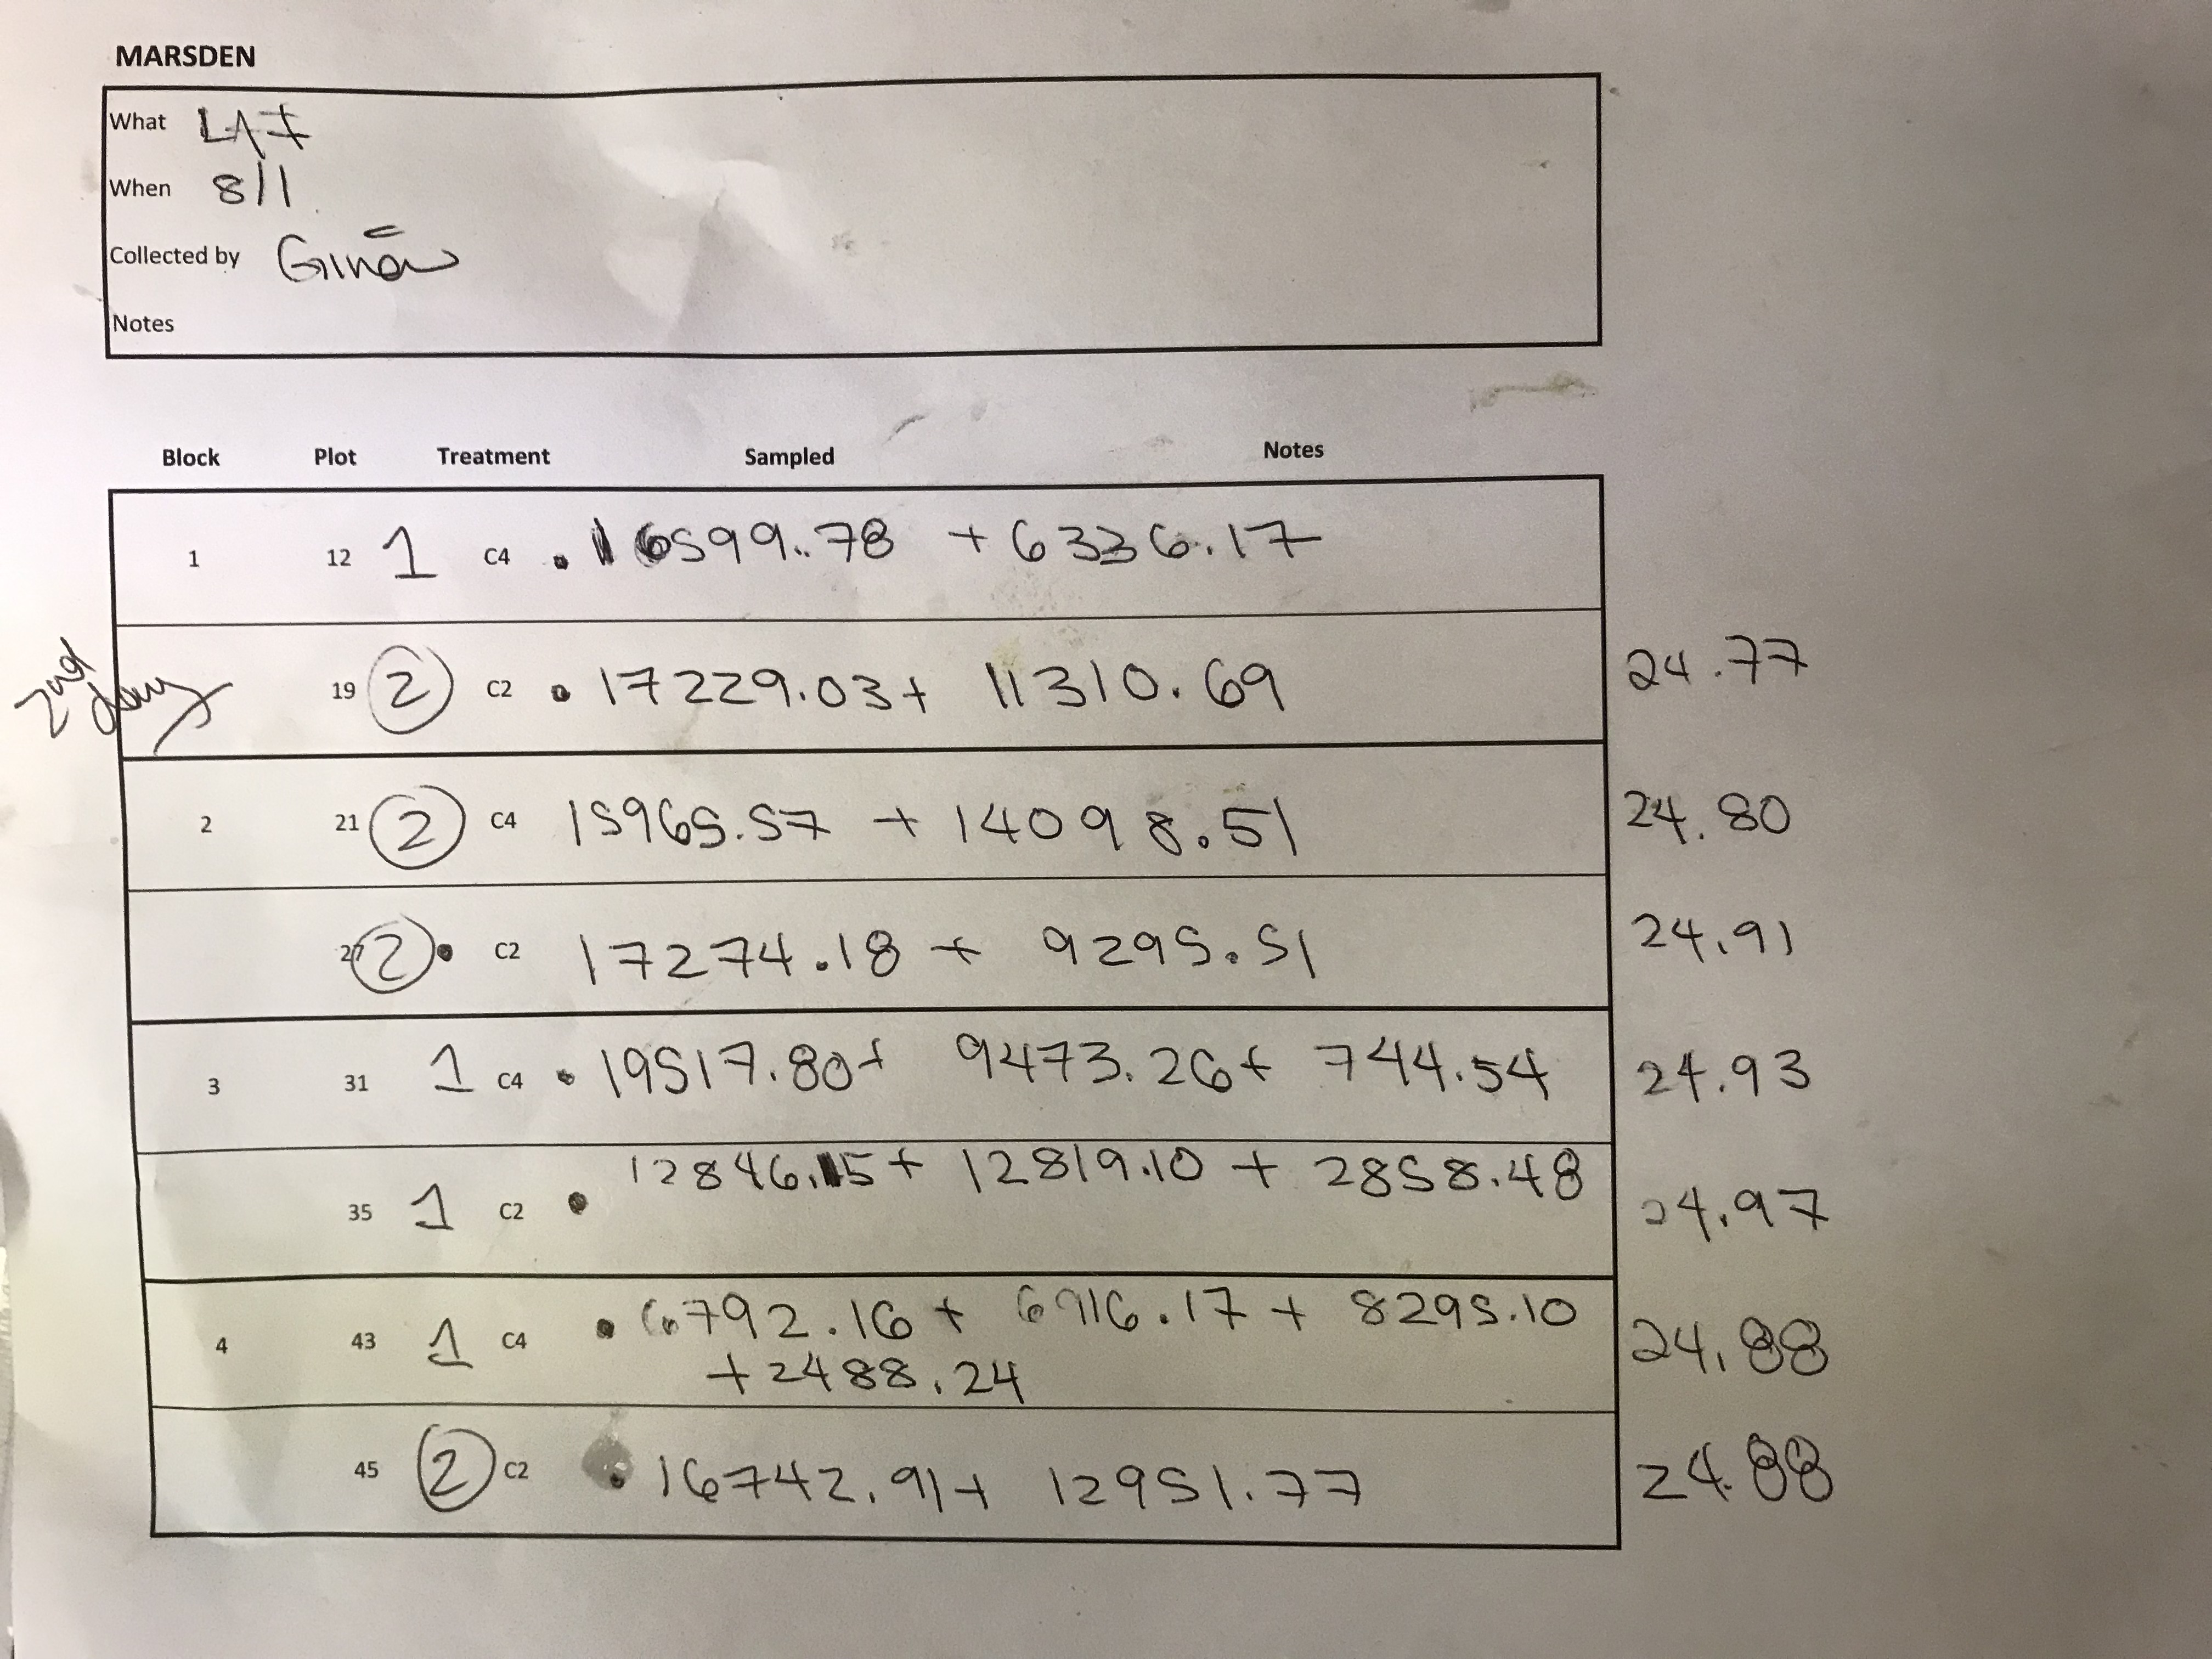 MARSDEN
What LAI
When 8/1
Collected by Gina
Notes
Block Plot Treatment Sampled Notes
1 12 1 C4 . 16599.78 + 6336.17
2nd day 19 2 C2 . 17229.03 + 11310.69 24.77
2 21 2 C4 15965.57 + 14098.51 24.80
27 2 . C2 17274.18 + 9295.51 24.91
3 31 1 C4 . 19517.80 + 9473.26 + 744.54 24.93
35 1 C2 . 12846.15 + 12819.10 + 2858.48 24.97
4 43 1 C4 . 6792.16 + 6916.17 + 8295.10 24.88
+2488.24
45 2 C2 . 16742.91 + 12951.77 24.88